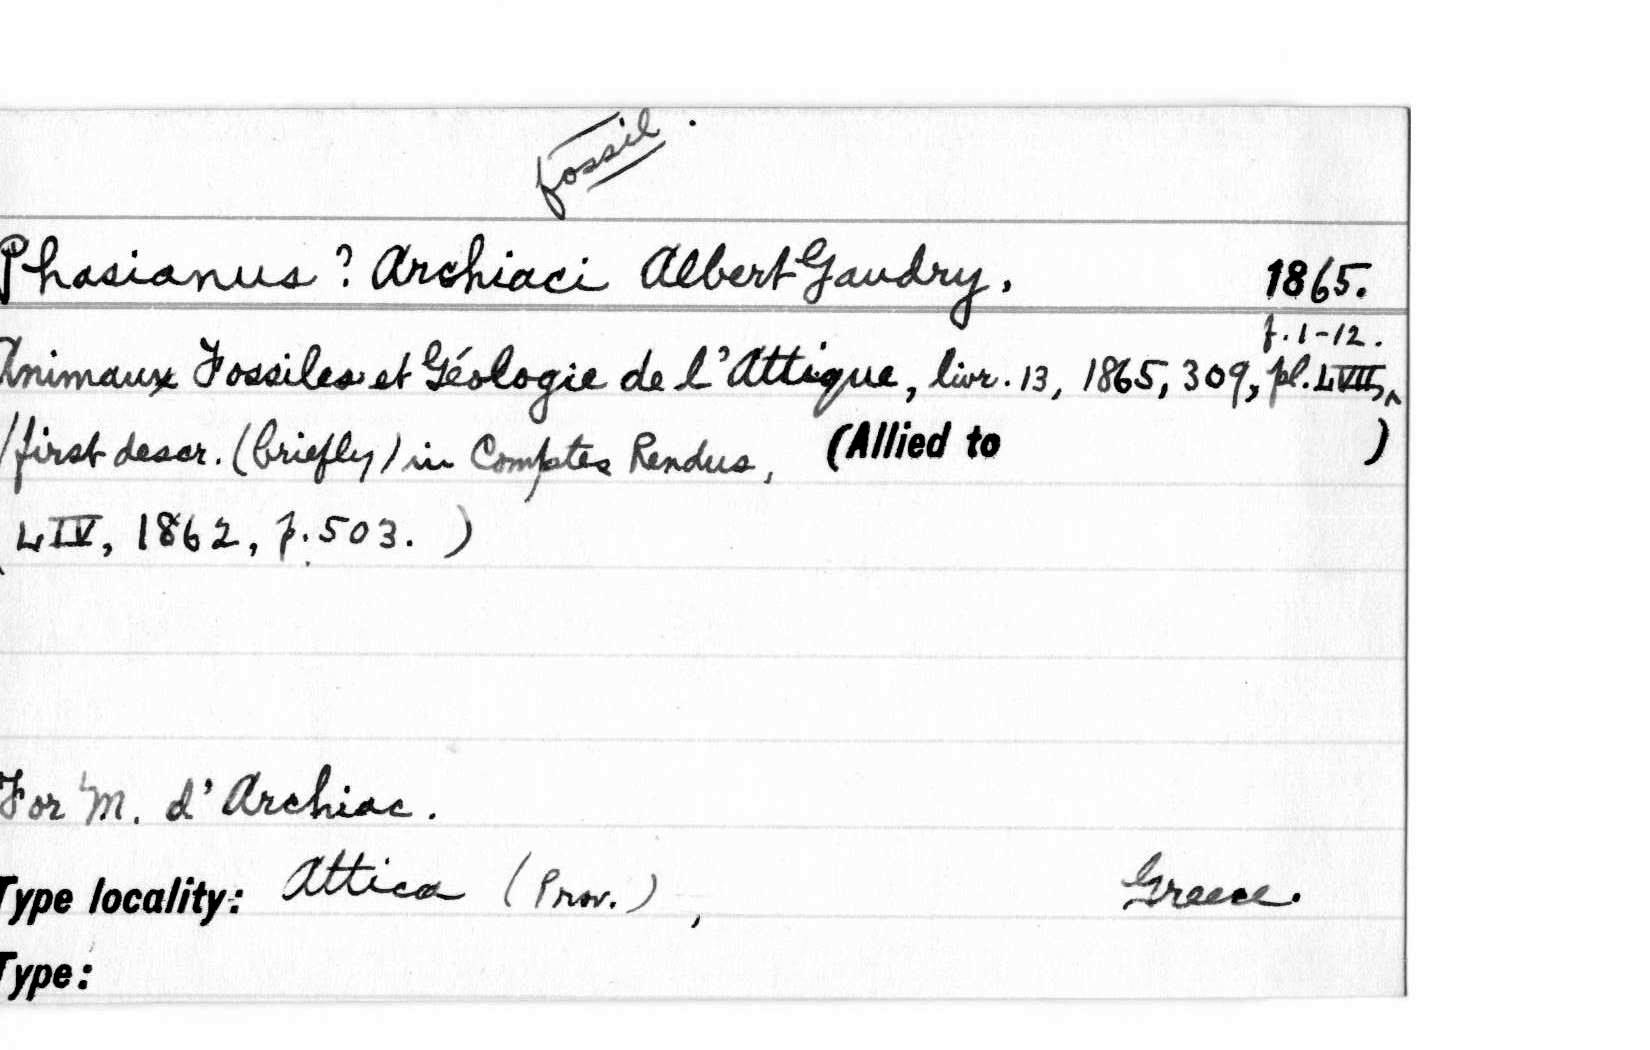 fossil.
Phasianus? Archiaci Albert Gaudry. 1865.
f. 1-12.
Animaux Fossiles et Géologie de l'Attique, livr. 13, 1865, 309, pl. LVII,
(first descr. (briefly) in Comptes Rendus, (Allied to )
LIV, 1862, p. 503. )
For M. d'Archiac.
Type locality: Attica (Prov.), Greece.
Type: